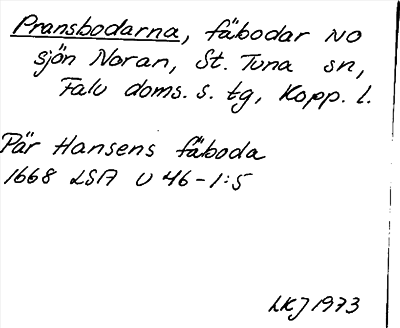 Pransbodarna, fäbodar NO
sjön Noran, St. Tuna sn,
Falu doms. s. tg, Kopp. l.
Pär Hansens fäboda
1668 LSA U 46-1:5
LKJ 1973